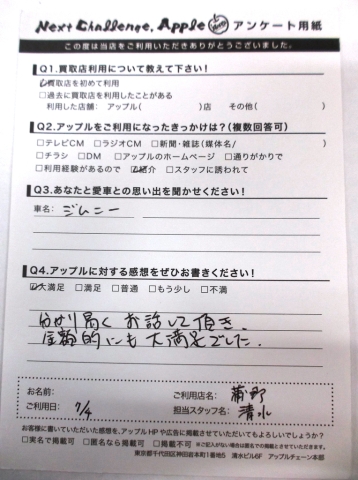 Next Challenge, Apple アンケート用紙
この度は当店をご利用いただきありがとうございました。
Q1.買取店利用について教えて下さい!
☑買取店を初めて利用
□過去に買取店を利用したことがある
利用した店舗: アップル( )店 その他( )
Q2.アップルをご利用になったきっかけは?(複数回答可)
□テレビCM □ラジオCM □新聞・雑誌(媒体名/ )
□チラシ □DM □アップルのホームページ □通りがかりで
□利用経験があるので ☑紹介 □スタッフに誘われて
Q3.あなたと愛車との思い出を聞かせください!
車名: ジムニー
Q4.アップルに対する感想をぜひお書きください!
☑大満足 □満足 □普通 □もう少し □不満
分かり易くお話して頂き、
金額的にも大満足でした。
お名前: ご利用店名: 蒲郡
ご利用日: 7/4 担当スタッフ名: 清水
お客様に書いていただいた感想を、アップルHPや広告に掲載させていただいてもよろしいでしょうか?
□実名で掲載可 □匿名なら掲載可 □掲載不可 ※ご記入がない場合は匿名での掲載とさせていただきます。
東京都千代田区神田岩本町1番地5 清水ビル6F アップルチェーン本部